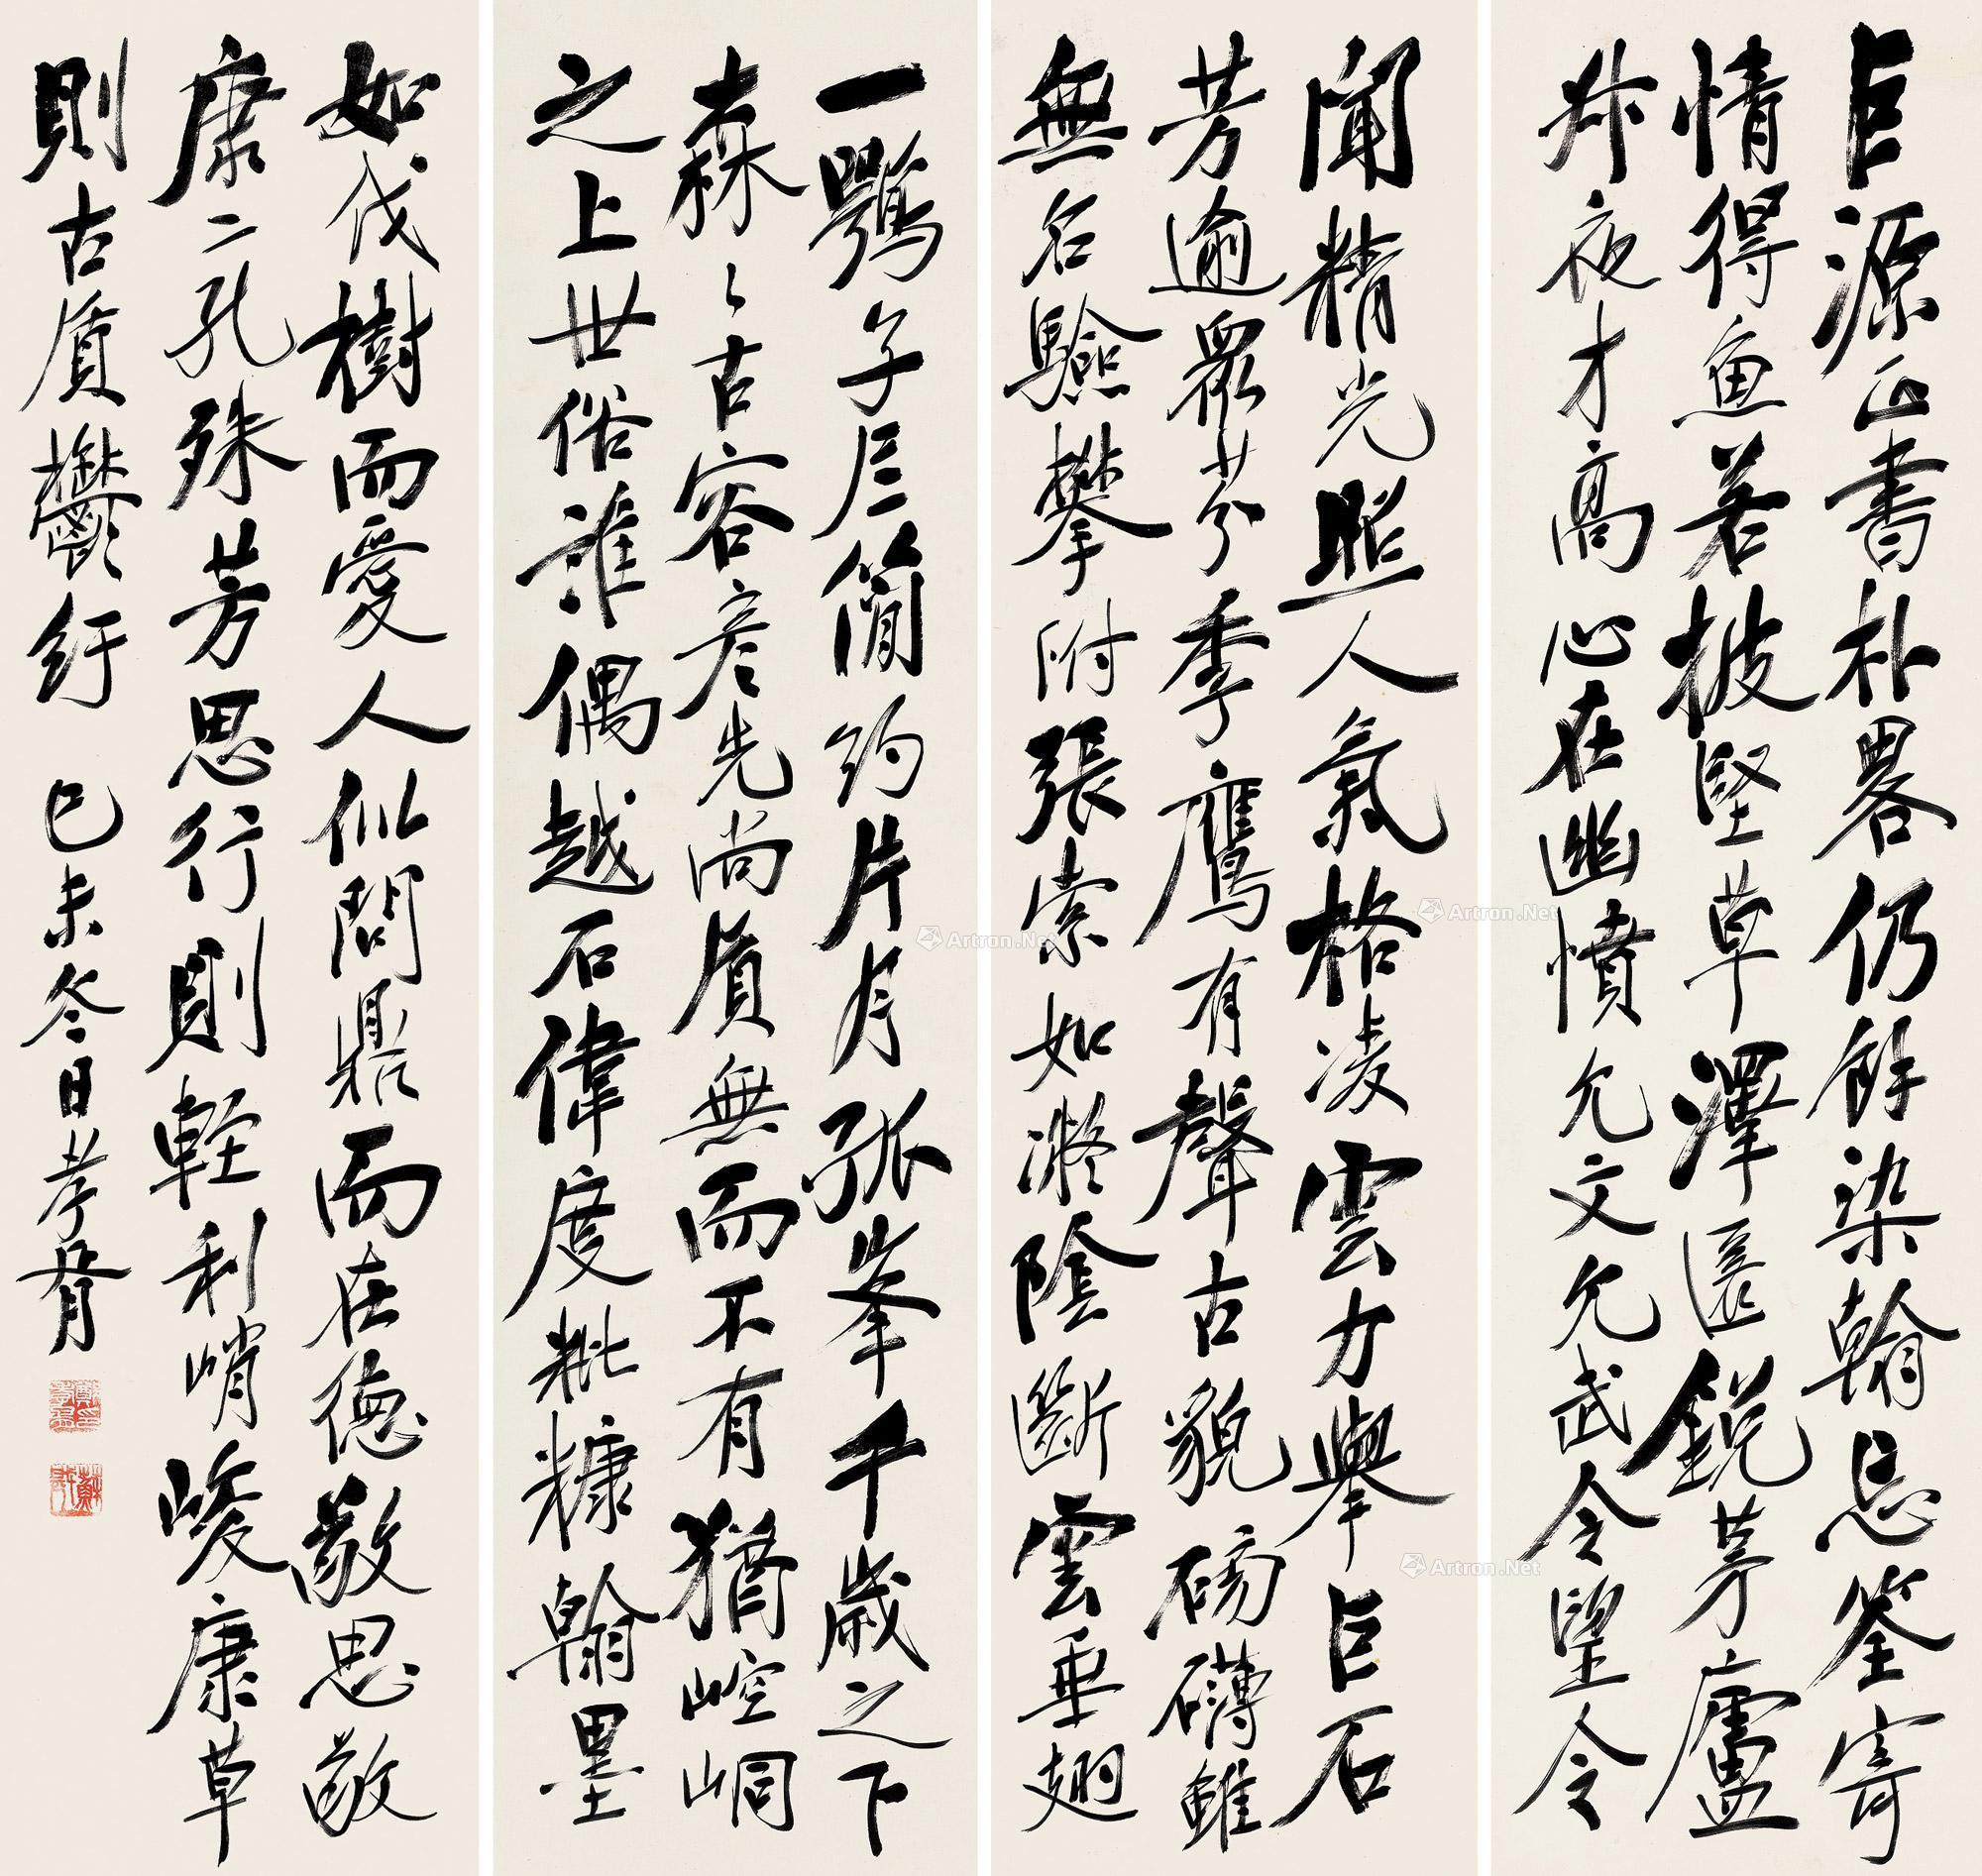 巨源正書朴略仍餘染翰忘筌寄
情得魚若披堅草澤匿銳茅廬
叔夜才高心在幽憤允文允武令望令
聞精光照人氣格凌雲力舉巨石
芳逾眾芬季鷹有聲古貌磅礴雖
無名驗攀附張索如凝陰斷雲垂翅
一鶚子臣簡約片月孤峯千歲之下
森々古容彥先尚質無而不有猶崆峒
之上世俗誰偶越石偉度粃糠翰墨
如伐樹而愛人似問鼎而在德敬思敬
康二孔殊芳思行則輕利峭峻康草
則古質鬱紆 己未冬日孝胥
Artron.Net
Artron.Net
Artron.Net